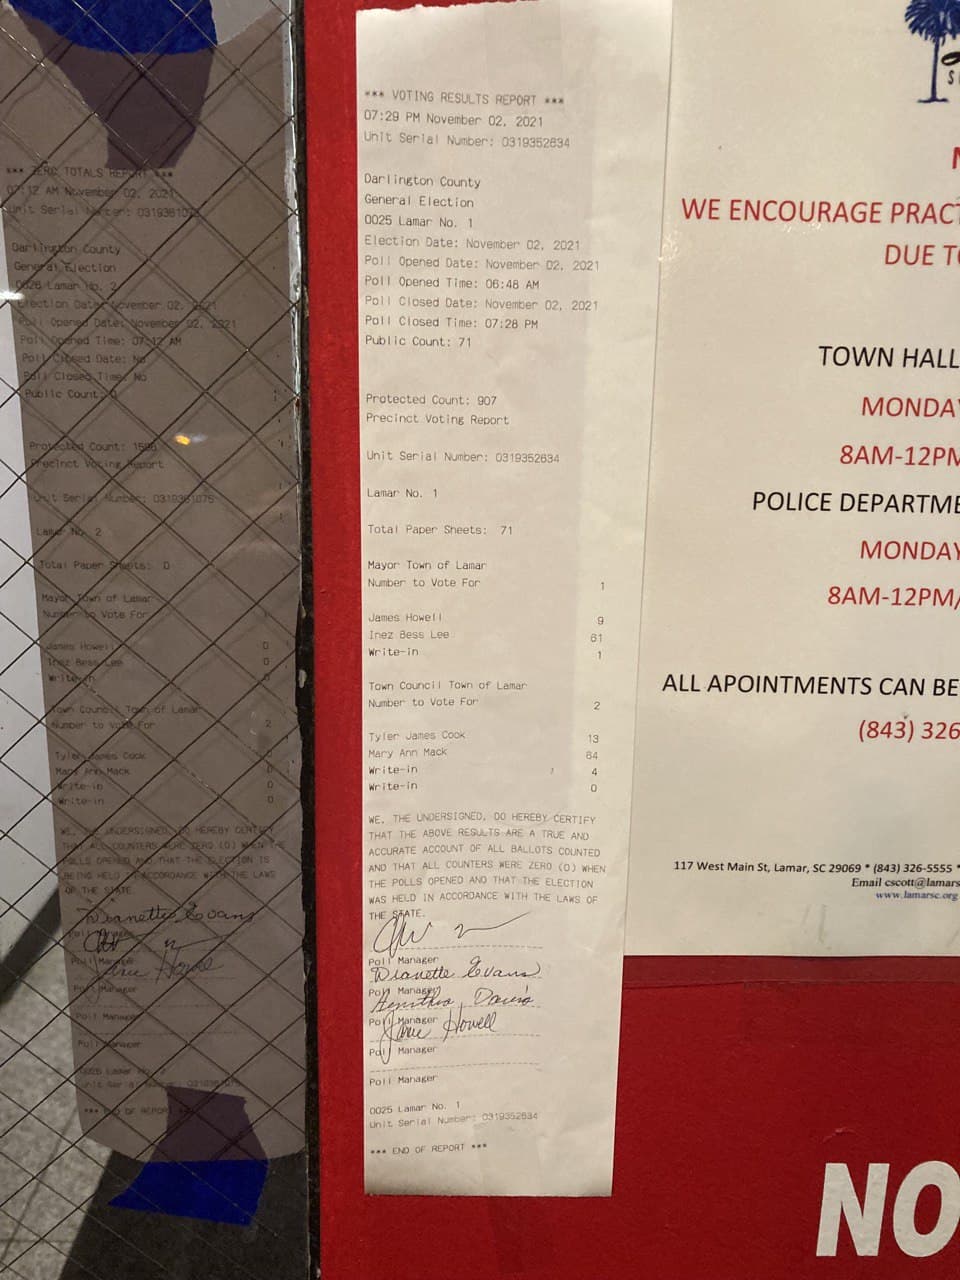 *** ZERO TOTALS REPORT ***
07:12 AM November 02, 2021
Unit Serial Number: 0319361075
Darlington County
General Election
0026 Lamar No. 2
Election Date: November 02, 2021
Poll Opened Date: November 02, 2021
Poll Opened Time: 07:12 AM
Poll Closed Date: No
Poll Closed Time: No
Public Count: 0
Protected Count:
Precinct Voting Report
Unit Serial Number: 0319361075
Lamar No. 2
Total Paper Sheets: 0
Mayor Town of Lamar
Number to Vote For 1
James Howell 0
Inez Bess Lee 0
Write-in 0
Town Council Town of Lamar
Number to Vote For 2
Tyler James Cook 0
Mary Ann Mack 0
Write-in 0
Write-in 0
WE, THE UNDERSIGNED, DO HEREBY CERTIFY
THAT ALL COUNTERS WERE ZERO (0) WHEN THE
POLLS OPENED AND THAT THE ELECTION IS
BEING HELD IN ACCORDANCE WITH THE LAWS
OF THE STATE.
Dianette Evans
Poll Manager
Poll Manager
Jane Howell
Poll Manager
Poll Manager
Poll Manager
0026 Lamar No. 2
Unit Serial Number: 0319361075
*** END OF REPORT ***
*** VOTING RESULTS REPORT ***
07:29 PM November 02, 2021
Unit Serial Number: 0319352634
Darlington County
General Election
0025 Lamar No. 1
Election Date: November 02, 2021
Poll Opened Date: November 02, 2021
Poll Opened Time: 06:48 AM
Poll Closed Date: November 02, 2021
Poll Closed Time: 07:28 PM
Public Count: 71
Protected Count: 907
Precinct Voting Report
Unit Serial Number: 0319352634
Lamar No. 1
Total Paper Sheets: 71
Mayor Town of Lamar
Number to Vote For 1
James Howell 9
Inez Bess Lee 61
Write-in 1
Town Council Town of Lamar
Number to Vote For 2
Tyler James Cook 13
Mary Ann Mack 64
Write-in 4
Write-in 0
WE, THE UNDERSIGNED, DO HEREBY CERTIFY
THAT THE ABOVE RESULTS ARE A TRUE AND
ACCURATE ACCOUNT OF ALL BALLOTS COUNTED
AND THAT ALL COUNTERS WERE ZERO (0) WHEN
THE POLLS OPENED AND THAT THE ELECTION
WAS HELD IN ACCORDANCE WITH THE LAWS OF
THE STATE.
Poll Manager
Dianette Evans
Poll Manager
Davis
Poll Manager
Jane Howell
Poll Manager
Poll Manager
0025 Lamar No. 1
Unit Serial Number: 0319352634
*** END OF REPORT ***
WE ENCOURAGE PRACT
DUE TO
TOWN HALL
MONDAY
8AM-12PM
POLICE DEPARTME
MONDAY
8AM-12PM/
ALL APOINTMENTS CAN BE
(843) 326
117 West Main St, Lamar, SC 29069 * (843) 326-5555 *
Email cscott@lamars
www.lamarsc.org
NO